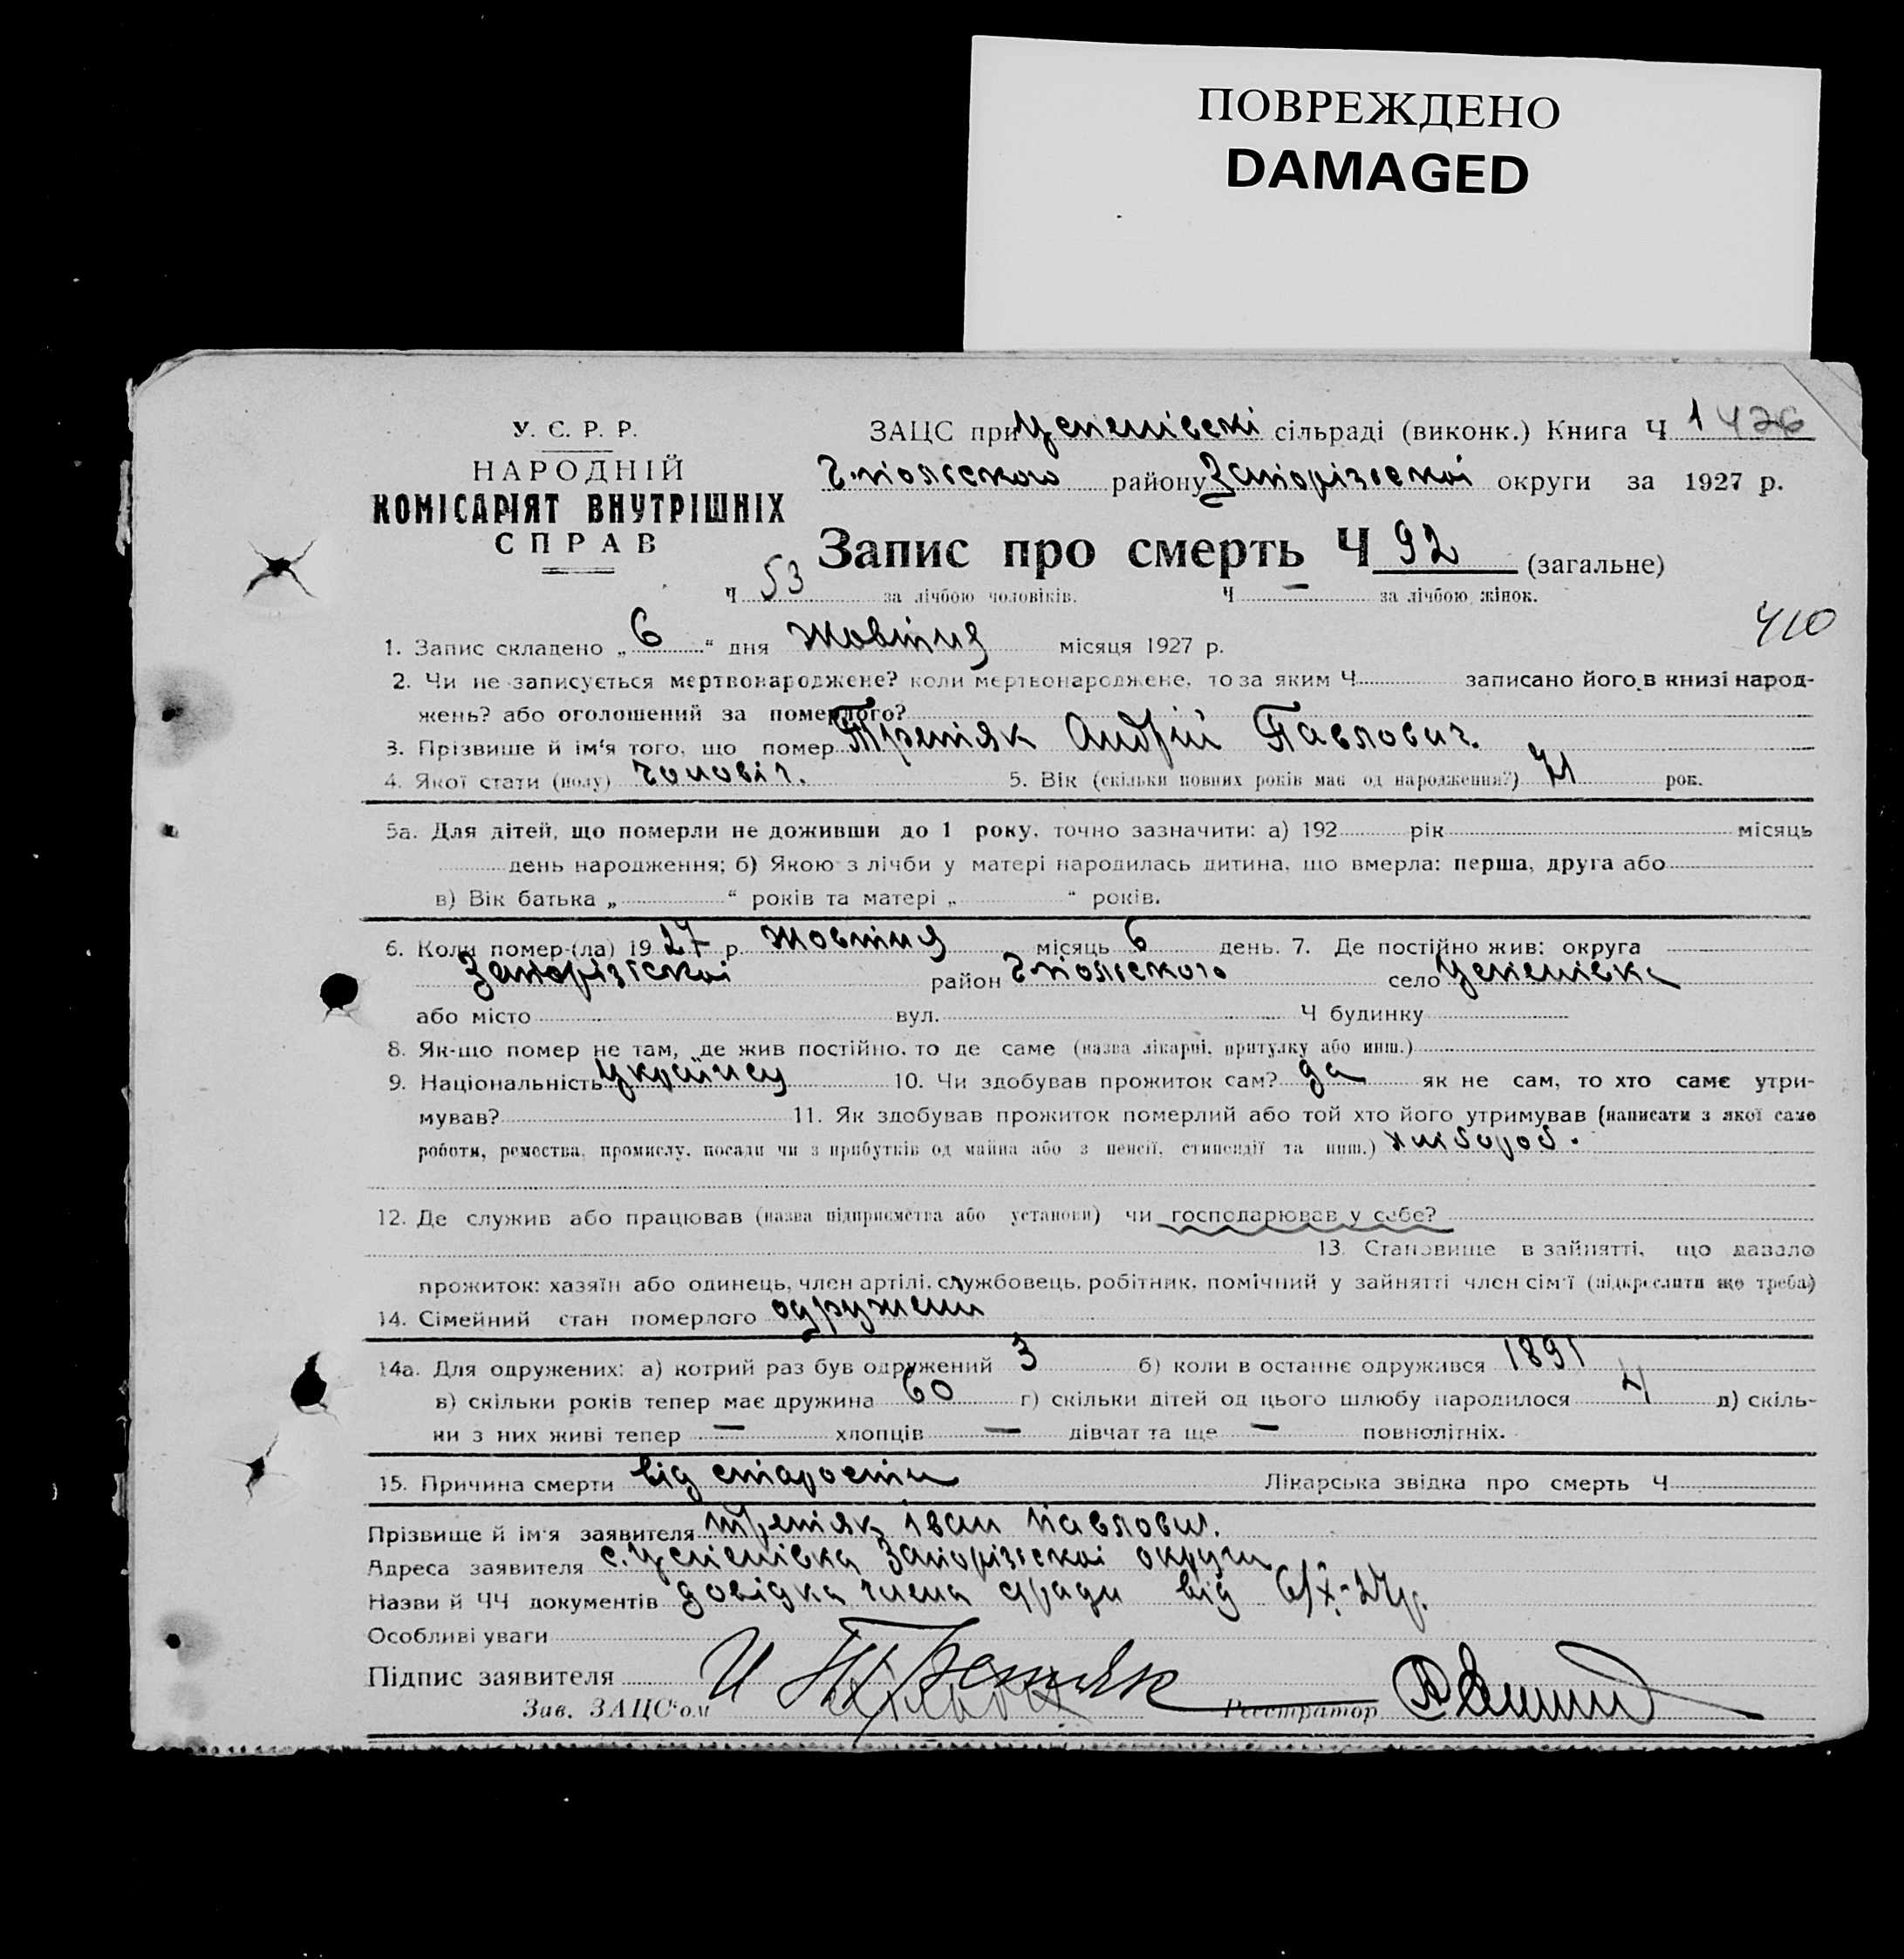 ПОВРЕЖДЕНО
DAMAGED
У. С. Р. Р.
НАРОДНІЙ
КОМІСАРІЯТ ВНУТРІШНІХ
СПРАВ
ЗАЦС при Успенівскі сільраді (виконк.) Книга Ч 1 426
Г-Польского району Запорізської округи за 1927 р.
Запис про смерть Ч 92 (загальне)
Ч 53 за лічбою чоловіків. Ч — за лічбою жінок.
410
1. Запис складено „ 6 “ дня Жовтня місяця 1927 р.
2. Чи не записується мертвонароджене? коли мертвонароджене, то за яким Ч записано його в книзі народ-
жень? або оголошений за померлого?
3. Прізвище й ім'я того, що помер Третяк Андрій Павлович.
4. Якої стати (полу) чоловіч. 5. Вік (скільки повних років має од народження?) 71 рок.
5а. Для дітей, що померли не доживши до 1 року, точно зазначити: а) 192 рік місяць
день народження; б) Якою з лічби у матері народилась дитина, що вмерла: перша, друга або
в) Вік батька „ “ років та матері „ “ років.
6. Коли помер-(ла) 19 27 р. Жовтня місяць 6 день. 7. Де постійно жив: округа
Запорізської район Г-Польского село Успенівка
або місто вул. Ч будинку
8. Як-що помер не там, де жив постійно, то де саме (назва лікарні, притулку або инш.)
9. Національність 10. Чи здобував прожиток сам? да як не сам, то хто саме утри-
мував? 11. Як здобував прожиток померлий або той хто його утримував (написати з якої саме
роботи, ремества, промислу, посади чи з прибутків од майна або з пенсії, стипендії та инш.) хлібороб.
12. Де служив або працював (назва підприємства або установи) чи господарював у себе?
13. Становище в зайнятті, що давало
прожиток: хазяїн або одинець, член артілі, службовець, робітник, помічний у зайнятті член сім'ї (підкреслити що треба)
14. Сімейний стан померлого одружени
14а. Для одружених: а) котрий раз був одружений 3 б) коли в останнє одружився 1891
в) скільки років тепер має дружина 60 г) скільки дітей од цього шлюбу народилося 4 д) скіль-
ки з них живі тепер — хлопців — дівчат та ще — повнолітніх.
15. Причина смерти від старости Лікарська звідка про смерть Ч
Прізвище й ім'я заявителя Третяк Іван Павлович.
Адреса заявителя с. Успенівка Запорізської округи
Назви й ЧЧ документів довідка члена с/ради від 6/X-27р.
Особливі уваги
Підпис заявителя И Третяк
Зав. ЗАЦС'ом Реєстратор